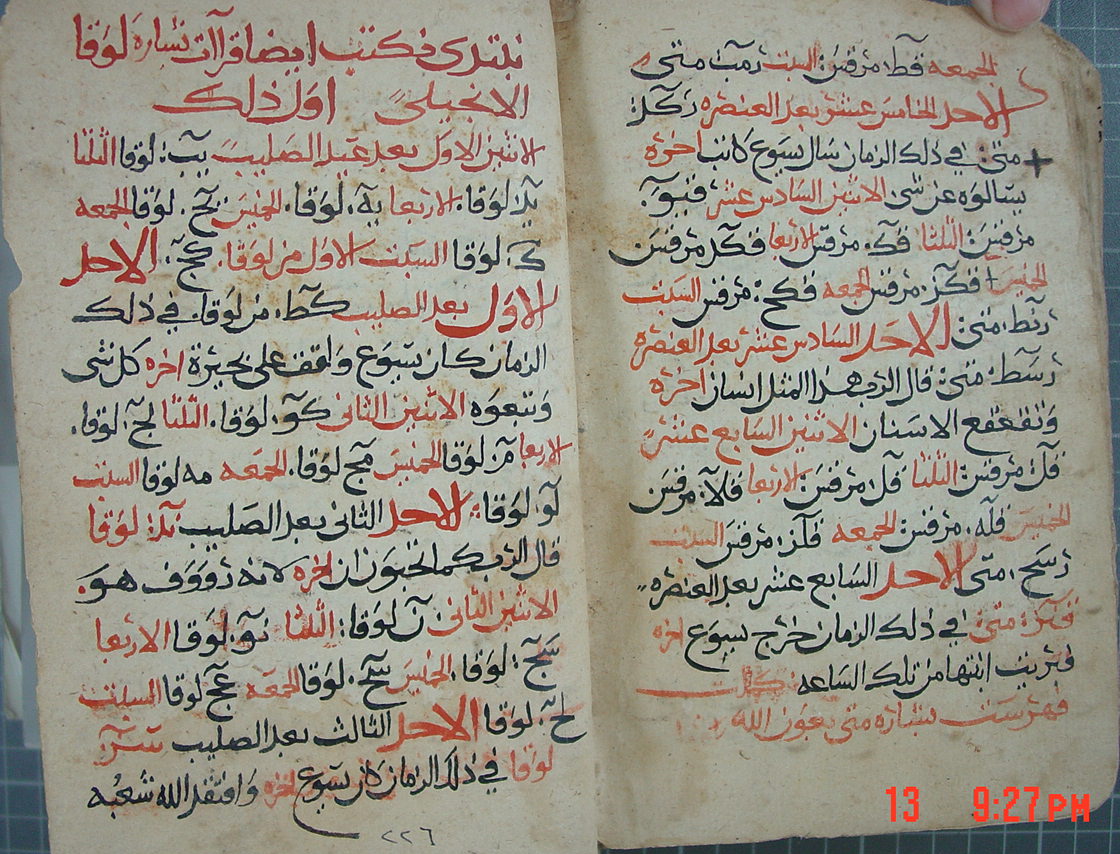 الجمعه قط مرقس: السبت رمب متى
الاحد الخامس عشر بعد العنصره ركل:
متى: في ذلك الزمان سال يسوع كاتب اخره
يسالوه عن شى الاثنين السادس عشر قيو:
مرقس: الثلثا فكه مرقس الاربعا فكد مرقس
الخميس فكز. مرقس الجمعه فكح: مرقس السبت
رنط. متى: الاحد السادس عشر بعد العنصره
رسط: متى: قال الرب هذا المثل انسان اخره
وتقعقع الاسنان الاثنين السابع عشر
قل: مرقس: الثلثا قل: مرقس: الاربعا قلا: مرقس
الخميس قله. مرقس: الجمعه قلز: مرقس السبت
رسح. متى الاحد السابع عشر بعد العنصره
قكز: متى: في ذلك الزمان خرج يسوع اخره
فبريت ابنتها من تلك الساعه كملت
فهرست بشاره متى بعون الله
نبتدى نكتب ايضا قراات بشاره لوقا
الانجيلى اول ذلك
الاثنين الاول بعد عيد الصليب يب: لوقا الثلثا
يد: لوقا. الاربعا يه. لوقا. الخميس يح. لوقا الجمعه
ك. لوقا السبت الاول من لوقا. كح: الاحد
الاول بعد الصليب كط. من لوقا. في ذلك
الزمان كان يسوع واقف على بحيرة اخره كل شى
وتبعوه الاثنين الثانى كو: لوقا. الثلثا لح: لوقا.
الاربعا م: لوقا الخميس مح لوقا. الجمعه مه لوقا السبت
لو لوقا: الاحد الثانى بعد الصليب ند: لوقا
قال الرب كما تحبون ان اخره لانه رووف هو.
الاثنين الثانى ن لوقا: الثلثا نو: لوقا الاربعا
سح: لوقا. الخميس سح. لوقا الجمعه عح لوقا السبت
لح. لوقا الاحد الثالث بعد الصليب
لوقا في ذلك الزمان كان يسوع اخره وافتقد الله شعبه
٢٢٦
13 9:27PM